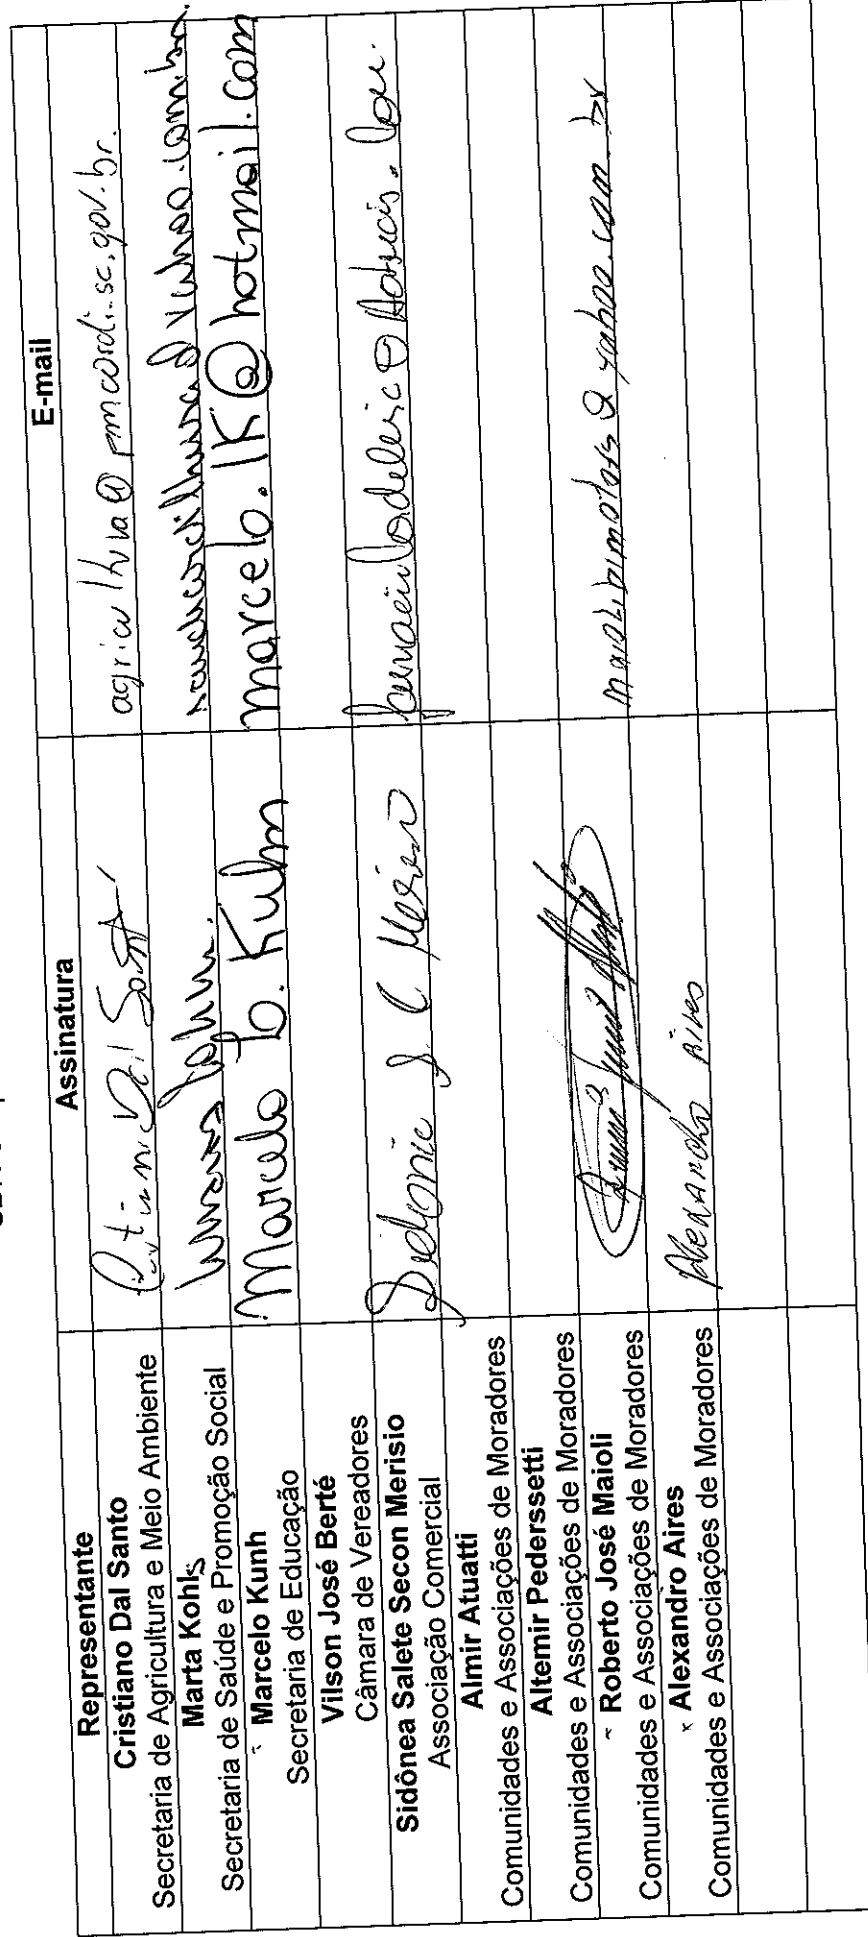 Representante Assinatura E-mail
Cristiano Dal Santo
Secretaria de Agricultura e Meio Ambiente
agricultura@pmcordi.sc.gov.br.
Marta Kohls
Secretaria de Saúde e Promoção Social
Marcelo Kunh
Secretaria de Educação
Marcelo b. Kuhn marcelo.1K@hotmail.com
Vilson José Berté
Câmara de Vereadores
Sidônea Salete Secon Merisio
Associação Comercial
Almir Atuatti
Comunidades e Associações de Moradores
Altemir Pederssetti
Comunidades e Associações de Moradores
Roberto José Maioli
Comunidades e Associações de Moradores
Alexandro Aires
Comunidades e Associações de Moradores
Alexandro Aires